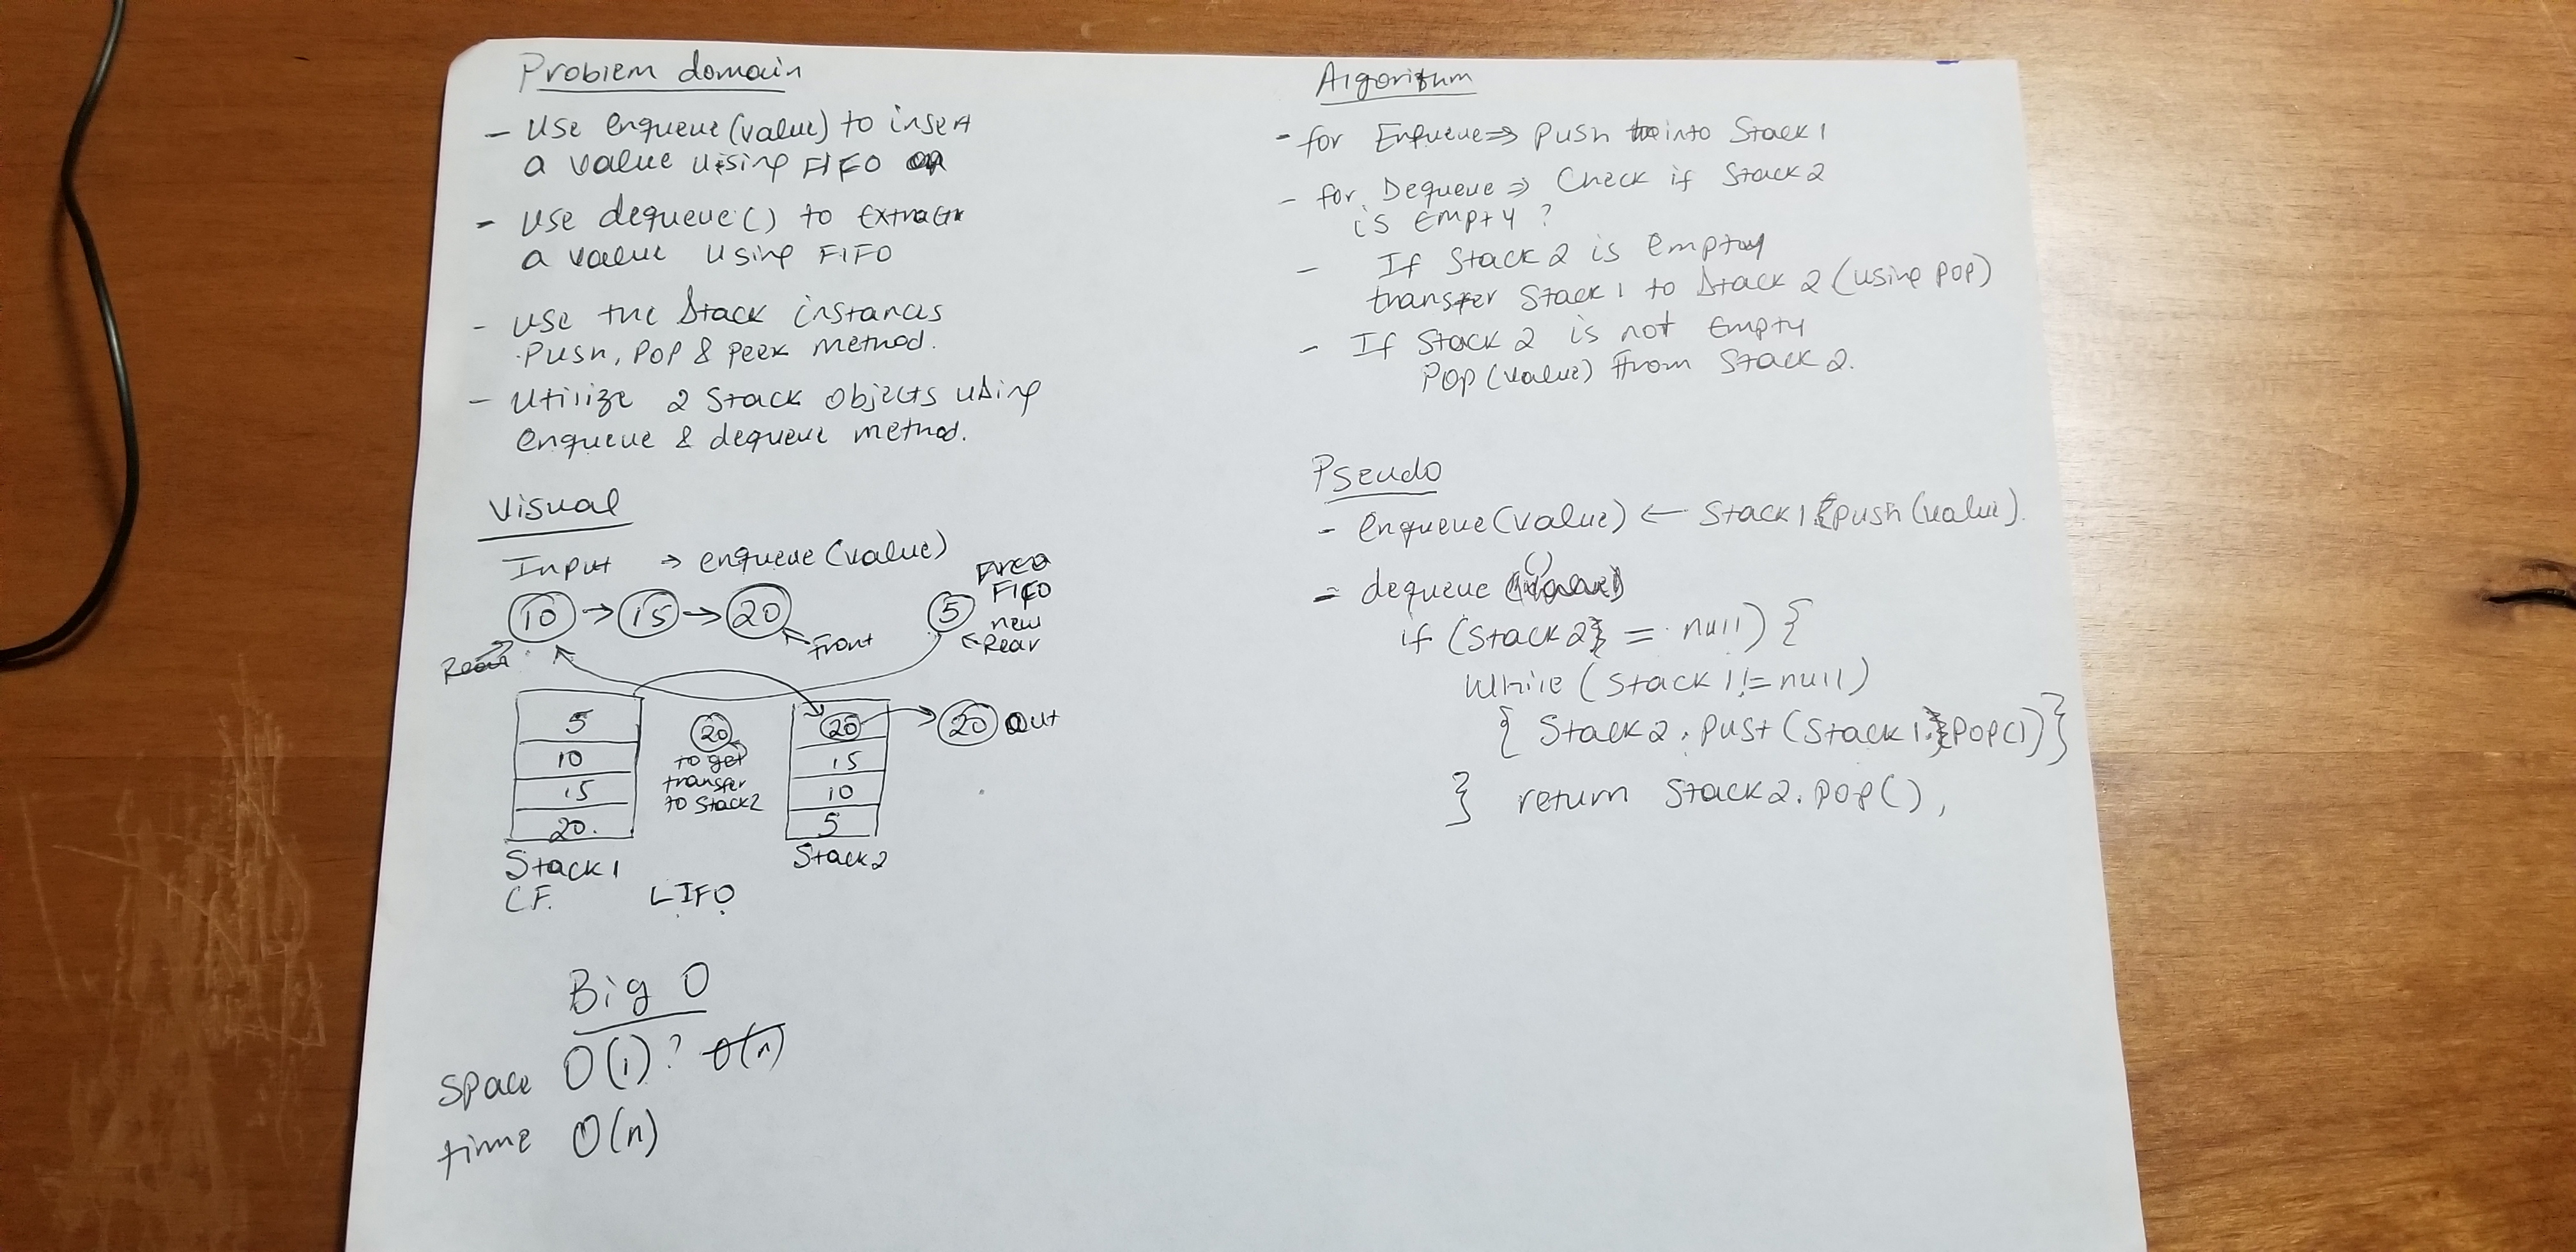 Problem domain
- Use enqueue(value) to insert
a value using FIFO
- Use dequeue() to extract
a value using FIFO
- Use the Stack instances
Push, Pop & peek method.
- Utilize 2 Stack objects using
enqueue & dequeue method.
Visual
Input → enqueue(value)
10 → 15 → 20
Front
Rear
5
FIFO
new
← Rear
5
10
15
20.
Stack1
C.F.
20
to get
transfer
to Stack2
LIFO
20
15
10
5
Stack2
20 out
Big O
Space O(1)? O(n)
time O(n)
Algorithm
- for Enqueue ⇒ push into Stack1
- for Dequeue ⇒ Check if Stack2
is Empty?
- If Stack2 is Empty
transfer Stack1 to Stack 2 (using pop)
- If Stack 2 is not Empty
Pop (value) from Stack 2.
Pseudo
- enqueue(value) ← Stack1.push(value).
= dequeue ()
if (Stack2 = null) {
while (Stack1 != null)
{ Stack2.pust(Stack1.pop()) }
} return Stack2.pop(),